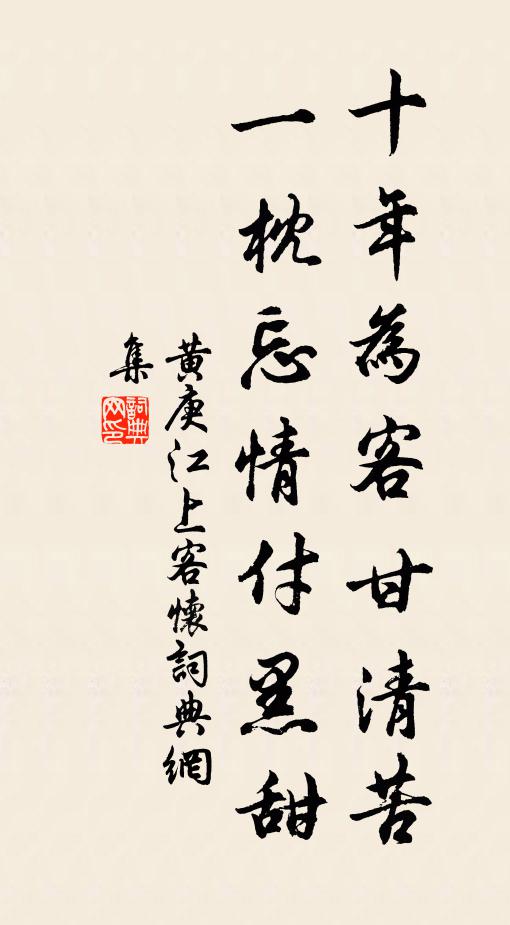 十年為客甘清苦
一枕忘情付黑甜
黄庚江上客懷詞典網
集
詞典网印